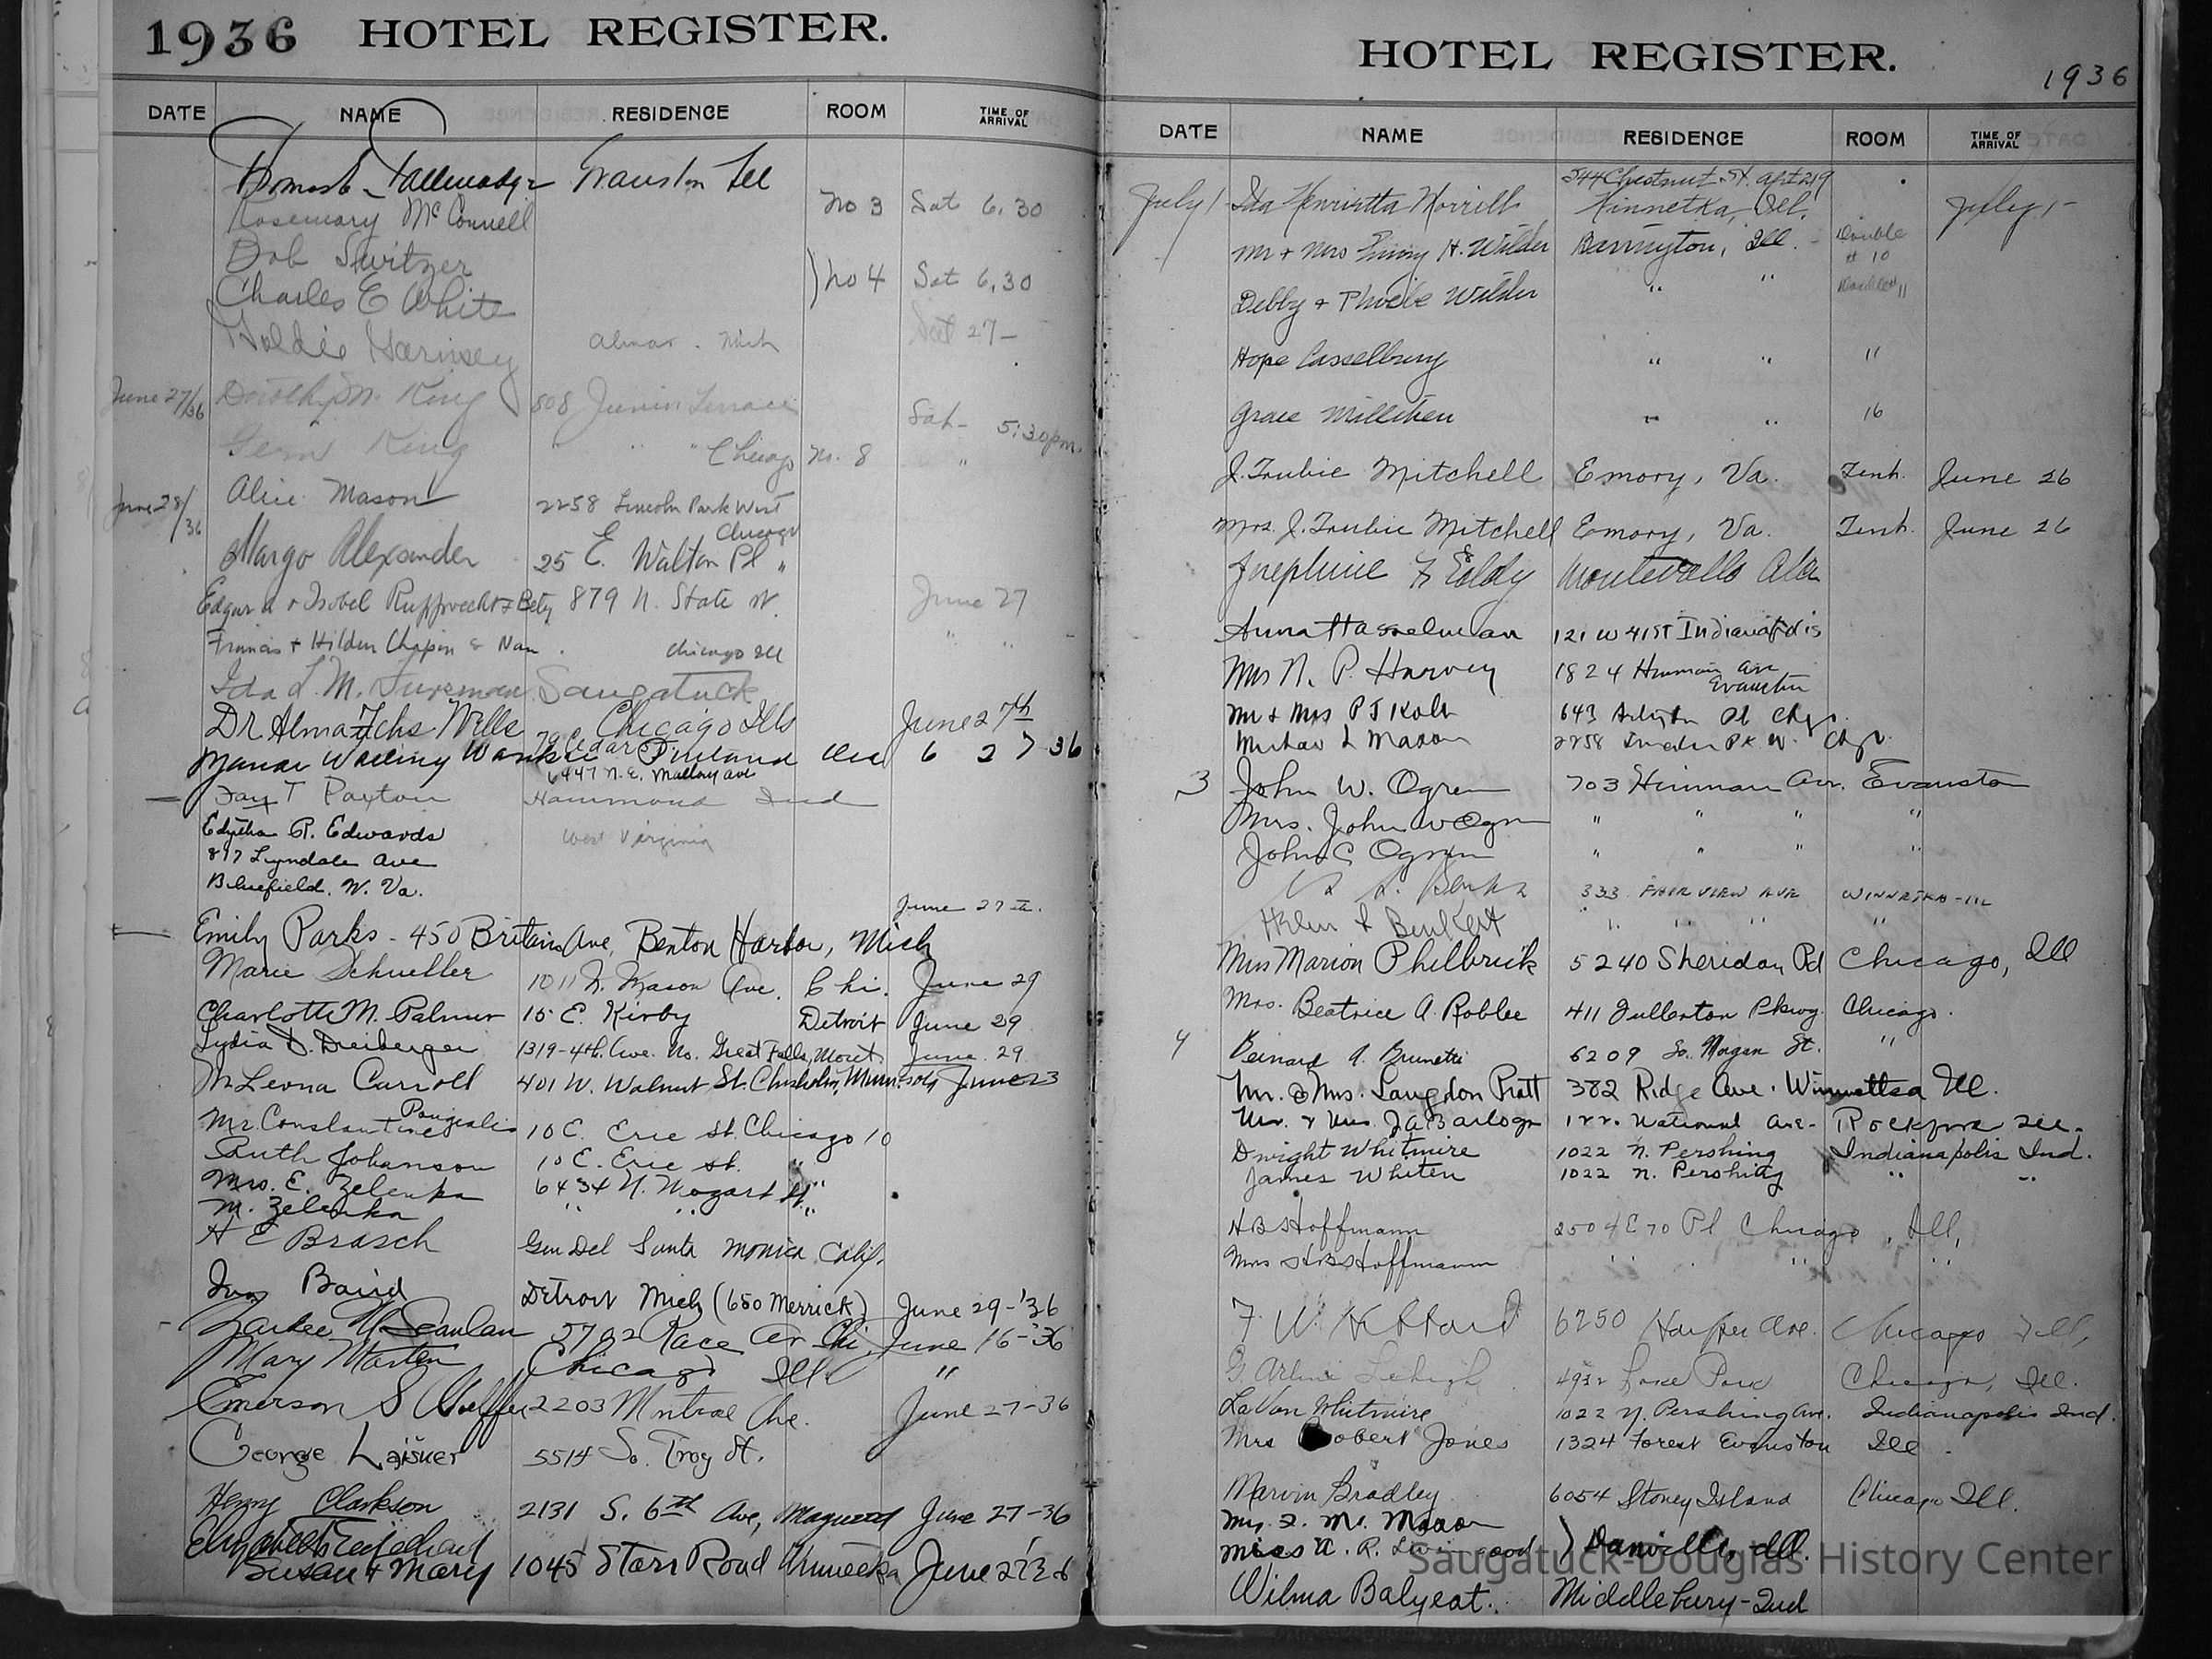 1936 HOTEL REGISTER.
DATE NAME RESIDENCE ROOM TIME OF ARRIVAL
Thomas E. Tallmadge Evanston Ill
Rosemary McConnell no 3 Sat 6,30
Bob Switzer
Charles E White ) no 4 Sat 6,30
Goldie Mich Sat 27-
June 27/36 Dorothy M. King 808 Junior Terrace Sat- 5:30pm.
King " " Chicago No. 8 "
June 28/36 Alice Mason 2258 Lincoln Park West
Chicago
Margo Alexander 25 E. Walton Pl "
Edgar A + Isobel Rupprecht + Bety 879 N. State St. June 27
Francis + Hilda Chapin & Nan. Chicago Ill " "
Ida L. M. Saugatuck
Dr. Alma Wells Chicago Ills June 27th
79 Cedar St.
6 27 36
6447 N.E. Mallory Ave
Fay T Paxton Hammond Ind
Edytha R. Edwards
817 Lyndale Ave West Virginia
Bluefield. W. Va.
June 27th.
Emily Parks - 450 Britain Ave, Benton Harbor, Mich
Marie Schueller 1011 N. Mason Ave. Chi. June 29
Charlotte M. Palmer 15 E. Kirby Detroit June 29
Lydia D. Dreiberger 1319-4th. Ave. No. Great Falls, Mont. June 29
M Leona Carroll 401 W. Walnut St. Chisholm, Minnesota June 23
Mr. Constantine 10 E. Erie St. Chicago 10
Ruth Johanson 10 E. Erie St. "
Mrs. E. Zelenka 6434 N. Mozart St. "
M. Zelenka " " "
H E Brasch Gen Del Santa Monica Calif.
Baird Detroit Mich (650 Merrick) June 29-'36
Scanlan 5702 Race Av Chi, June 16-36
Mary Marten Chicago Ill "
Emerson S 2203 Montrose Ave. June 27-36
George Laisner 5514 So. Troy St.
Henry Clarkson 2131 S. 6th Ave, Maywood June 27-36
Elizabeth
Susan + Mary 1045 Starr Road Winnetka June 27 36
HOTEL REGISTER.
1936
DATE NAME RESIDENCE ROOM TIME OF ARRIVAL
544 Chestnut St. Apt 219
July 1 Ida Henrietta Morrill Winnetka, Ill. July 1-
Mr + Mrs Emory H. Wilder Barrington, Ill. - Double # 10
Debby + Phoebe Wilder " " Double 11
Hope Casselbury " " 11
Grace Milliken " " 16
J. Trubie Mitchell Emory, Va. Tent. June 26
Mrs. J. Trubie Mitchell Emory, Va. Tent. June 26
Josephine F Eddy Montevallo Ala
Anna Hasselman 121 W 41ST Indianapolis
Mrs N. P. Harvey 1824 Hinman Ave
Evanston
Mr + Mrs P J Kolb 643 Arlington Pl Chgo.
Michael L Mason 2258 Lincoln Pk W. Chgo.
3 John W. Ogren 703 Hinman Av. Evanston
Mrs. John W Ogren " " " "
John C Ogren " " " "
333 FAIRVIEW AVE WINNETKA-ILL
Helen " " " "
Miss Marion Philbrick 5240 Sheridan Rd Chicago, Ill
Mrs. Beatrice A. Roblee 411 Fullerton Pkwy. Chicago.
4 Bernard A. Brunetti 6209 So. Morgan St. "
Mr. & Mrs. Langdon Pratt 382 Ridge Ave. Winnetka Ill.
Mr. & Mrs. National Ave- Rockford Ill.
Dwight Whitmire 1022 N. Pershing Indianapolis Ind.
James Whiten 1022 N. Pershing " "
H B Hoffmann 2504 E 70 Pl Chicago, Ill,
Mrs H B Hoffmann " " "
F. W. Hibbard 6250 Harper Ave. Chicago Ill,
G. Arline Lehigh 4932 Lake Park Chicago, Ill.
LaVon Whitmire 1022 N. Pershing Ave. Indianapolis Ind.
Mrs Robert Jones 1324 Forest Evanston Ill.
Marvin Bradley 6054 Stoney Island Chicago Ill.
Mason
Miss R. ) Danville, Ill.
Wilma Balyeat. Middlebury-Ind
Saugatuck-Douglas History Center